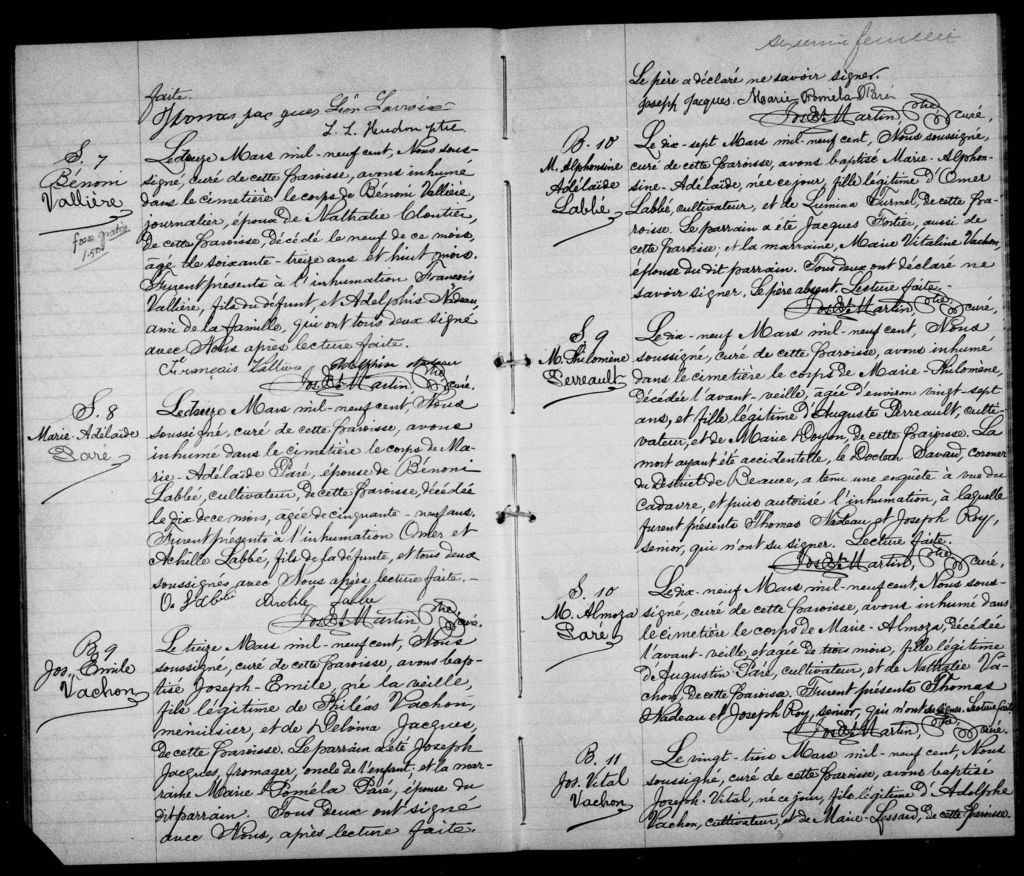 faite.
Thomas jac ques Léon Lacroix
L. L. Hudon ptre
S. 7
Bénoni
Vallière
fosse gratis
1.50
Le douze Mars mil-neuf cent, Nous sous-
signé, curé de cette Paroisse, avons inhumé
dans le cimetière le corps de Bénoni Vallière,
journalier, époux de Nathalie Cloutier,
de cette Paroisse, décédé le neuf de ce mois,
âgé de soixante-treize ans et huit mois.
Furent présents à l'inhumation François
Vallière, fils du défunt, et Adelphis Nadeau,
ami de la famille, qui ont tous deux signé
avec Nous après lecture faite.
François Vallière
Jos. Et. Martin, Ptre curé.
S. 8
Marie-Adélaïde
Paré
Le douze Mars mil-neuf cent, Nous
soussigné, curé de cette Paroisse, avons
inhumé dans le cimetière le corps de Ma-
rie-Adélaïde Paré, épouse de Bénoni
Labbé, cultivateur, de cette Paroisse, décédée
le dix de ce mois, agée de cinquante-neuf ans.
Furent présents à l'inhumation Omer et
Achille Labbé, fils de la défunte, et tous deux
soussignés avec Nous après lecture faite.-
Labbé Labbe
Jos. Et. Martin, Ptre curé.
B. 9
Jos. Emile
Vachon
Le treize Mars mil-neuf cent, Nous
soussigné, curé de cette Paroisse, avons bap-
tisé Joseph-Emile, né la veille,
fils légitime de Philéas Vachon,
menuisier, et de Delvina Jacques,
de cette Paroisse. Le parrain a été Joseph
Jacques, fromager, oncle de l'enfant; et la mar-
raine Marie Roméla Paré, épouse du
dit parrain. Tous deux ont signé
avec Nous, après lecture faite.
feuillet
Le père a déclaré ne savoir signer.
Joseph Jacques. Marie Roméla Paré
Jos. Et. Martin, Ptre curé,
B. 10
M. Alphonsine
Adélaïde
Labbé
Le dix-sept Mars mil-neuf cent, Nous soussigné,
curé de cette Paroisse, avons baptisé Marie-Alphon-
sine-Adélaïde, née ce jour, fille légitime d'Omer
Labbé, cultivateur, et de Lumina Turmel, de cette Pa-
roisse. Le parrain a été Jacques Fortier, aussi de
cette Paroisse; et la marraine, Marie Vitaline Vachon,
épouse du dit parrain. Tous deux ont déclaré ne
savoir signer. Le père absent. Lecture faite.-
Jos. Et. Martin, Ptre curé,
S. 9
M. Philomène
Perreault
Le dix-neuf Mars mil-neuf cent, Nous
soussigné, curé de cette Paroisse, avons inhumé
dans le cimetière le corps de Marie-Philomène,
décédée l'avant-veille, agée d'environ vingt-sept
ans, et fille légitime d'Auguste Perreault, culti-
vateur, et de Marie Doyon, de cette Paroisse. La
mort ayant été accidentelle, le Docteur Savard, coroner
du District de Beauce, a tenu une enquête à vue du
cadavre, et puis autorisé l'inhumation, à laquelle
furent présents Thomas Nadeau et Joseph Roy,
senior, qui n'ont su signer. Lecture faite.
Jos. Et. Martin, Ptre curé,
S. 10
M. Almoza
Paré
Le dix-neuf Mars mil-neuf cent, Nous sous-
signé, curé de cette Paroisse, avons inhumé dans
le cimetière le corps de Marie-Almoza, décédée
l'avant-veille, et agée de trois mois, fille légitime
d'Augustin Paré, cultivateur, et de Nathalie Va-
chon, de cette Paroisse. Furent présents Thomas
Nadeau et Joseph Roy, senior, qui n'ont su signer. Lecture faite.
Jos. Et. Martin, Ptre curé.
B. 11
Jos. Vital
Vachon
Le vingt-trois Mars mil-neuf cent, Nous
soussigné, curé de cette Paroisse, avons baptisé
Joseph-Vital, né ce jour, fils légitime d'Adolphe
Vachon, cultivateur, et de Marie Lessard, de cette Paroisse.